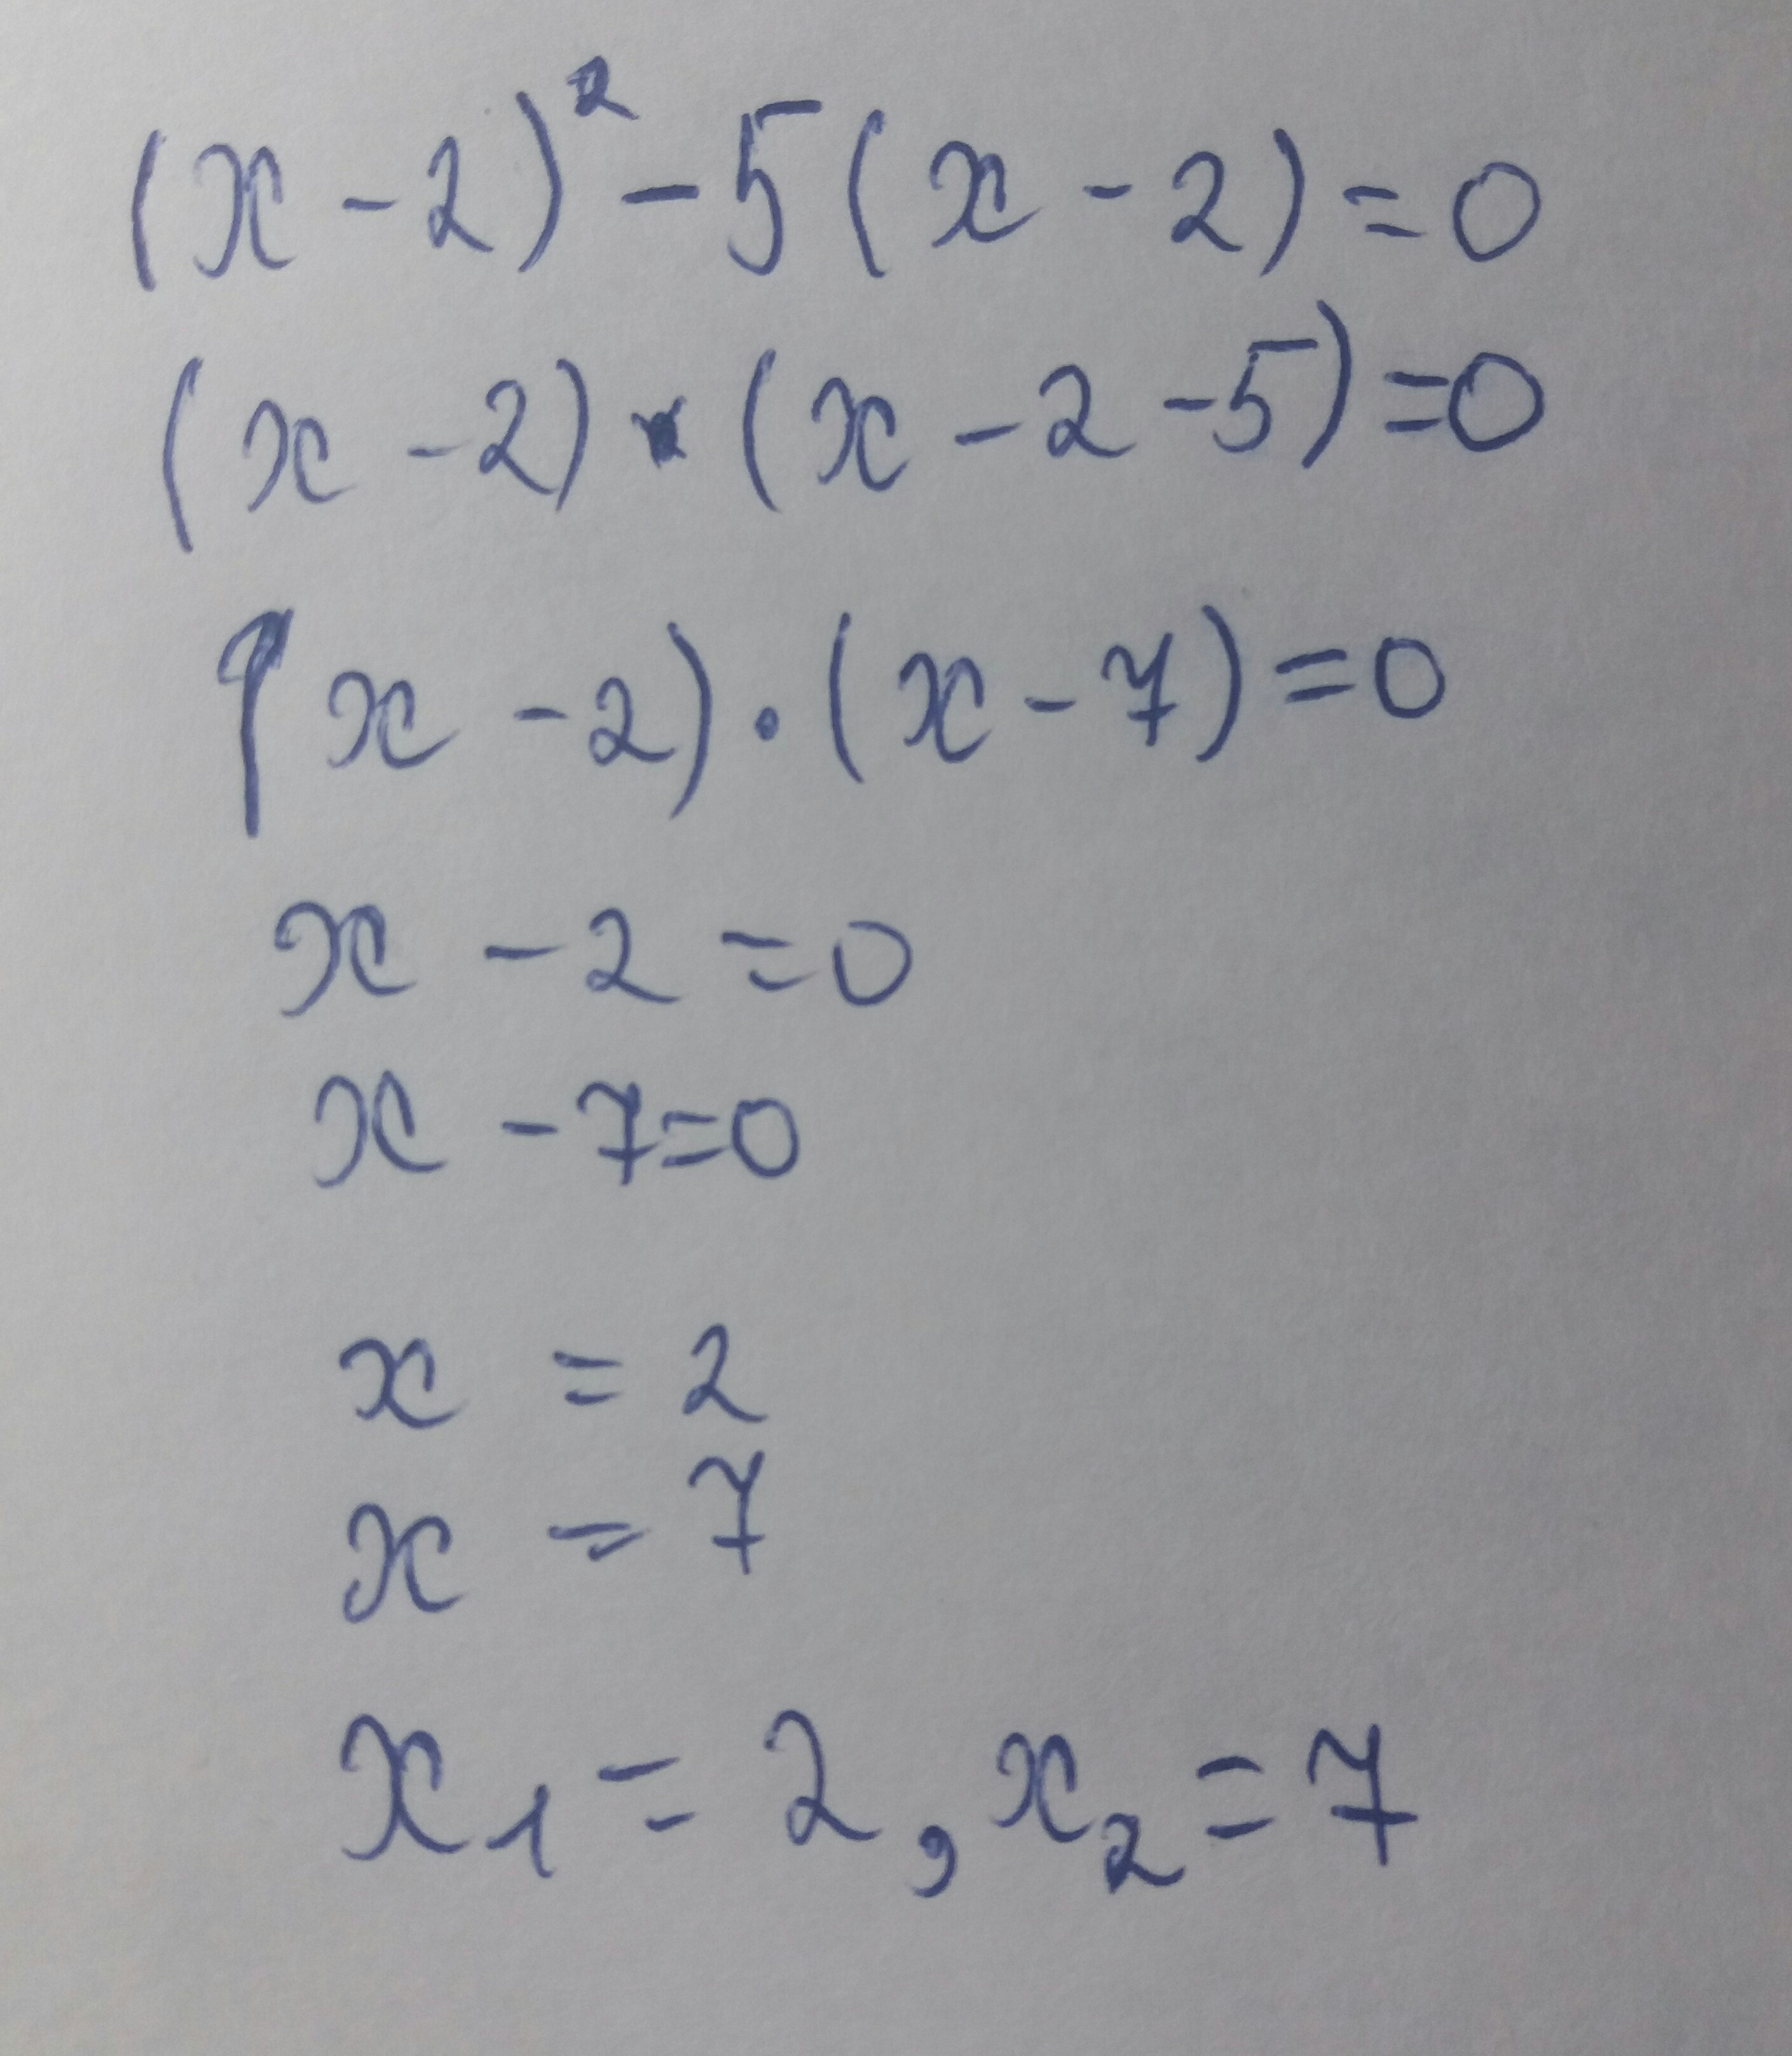 (x - 2)² - 5(x - 2) = 0
(x - 2) · (x - 2 - 5) = 0
(x - 2) · (x - 7) = 0
x - 2 = 0
x - 7 = 0
x = 2
x = 7
x₁ = 2, x₂ = 7